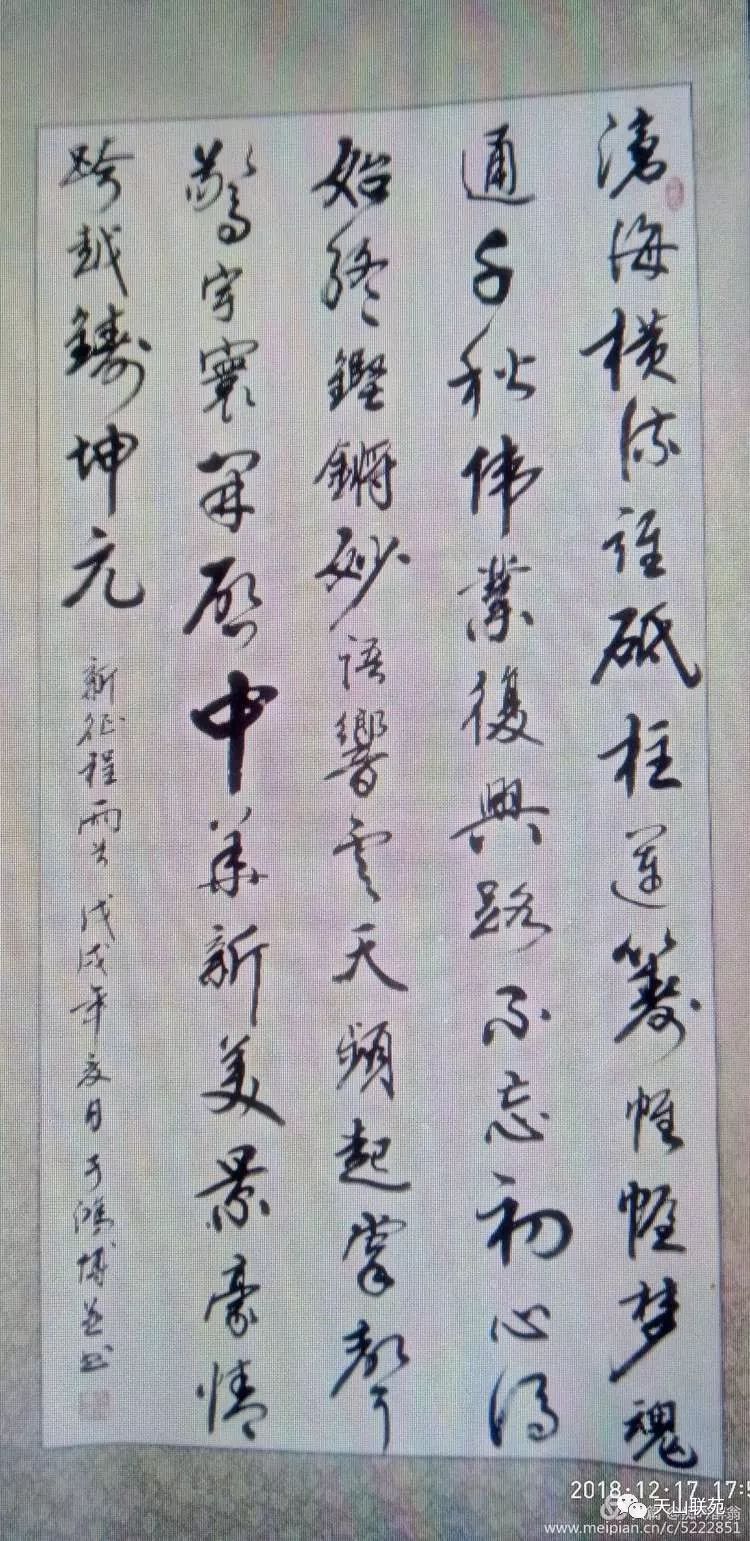 滄海橫流誰砥柱運籌帷幄梦魂
通千秋伟業復興路不忘初心得
始終鏗鏘妙語響雲天頻起掌聲
驚宇寰開啟中华新美景豪情
跨越鑄坤元
新征程 戊戌年夏日于鴻博并书
2018.12.17 17:5
天山联苑
www.meipian.cn/c/5222851